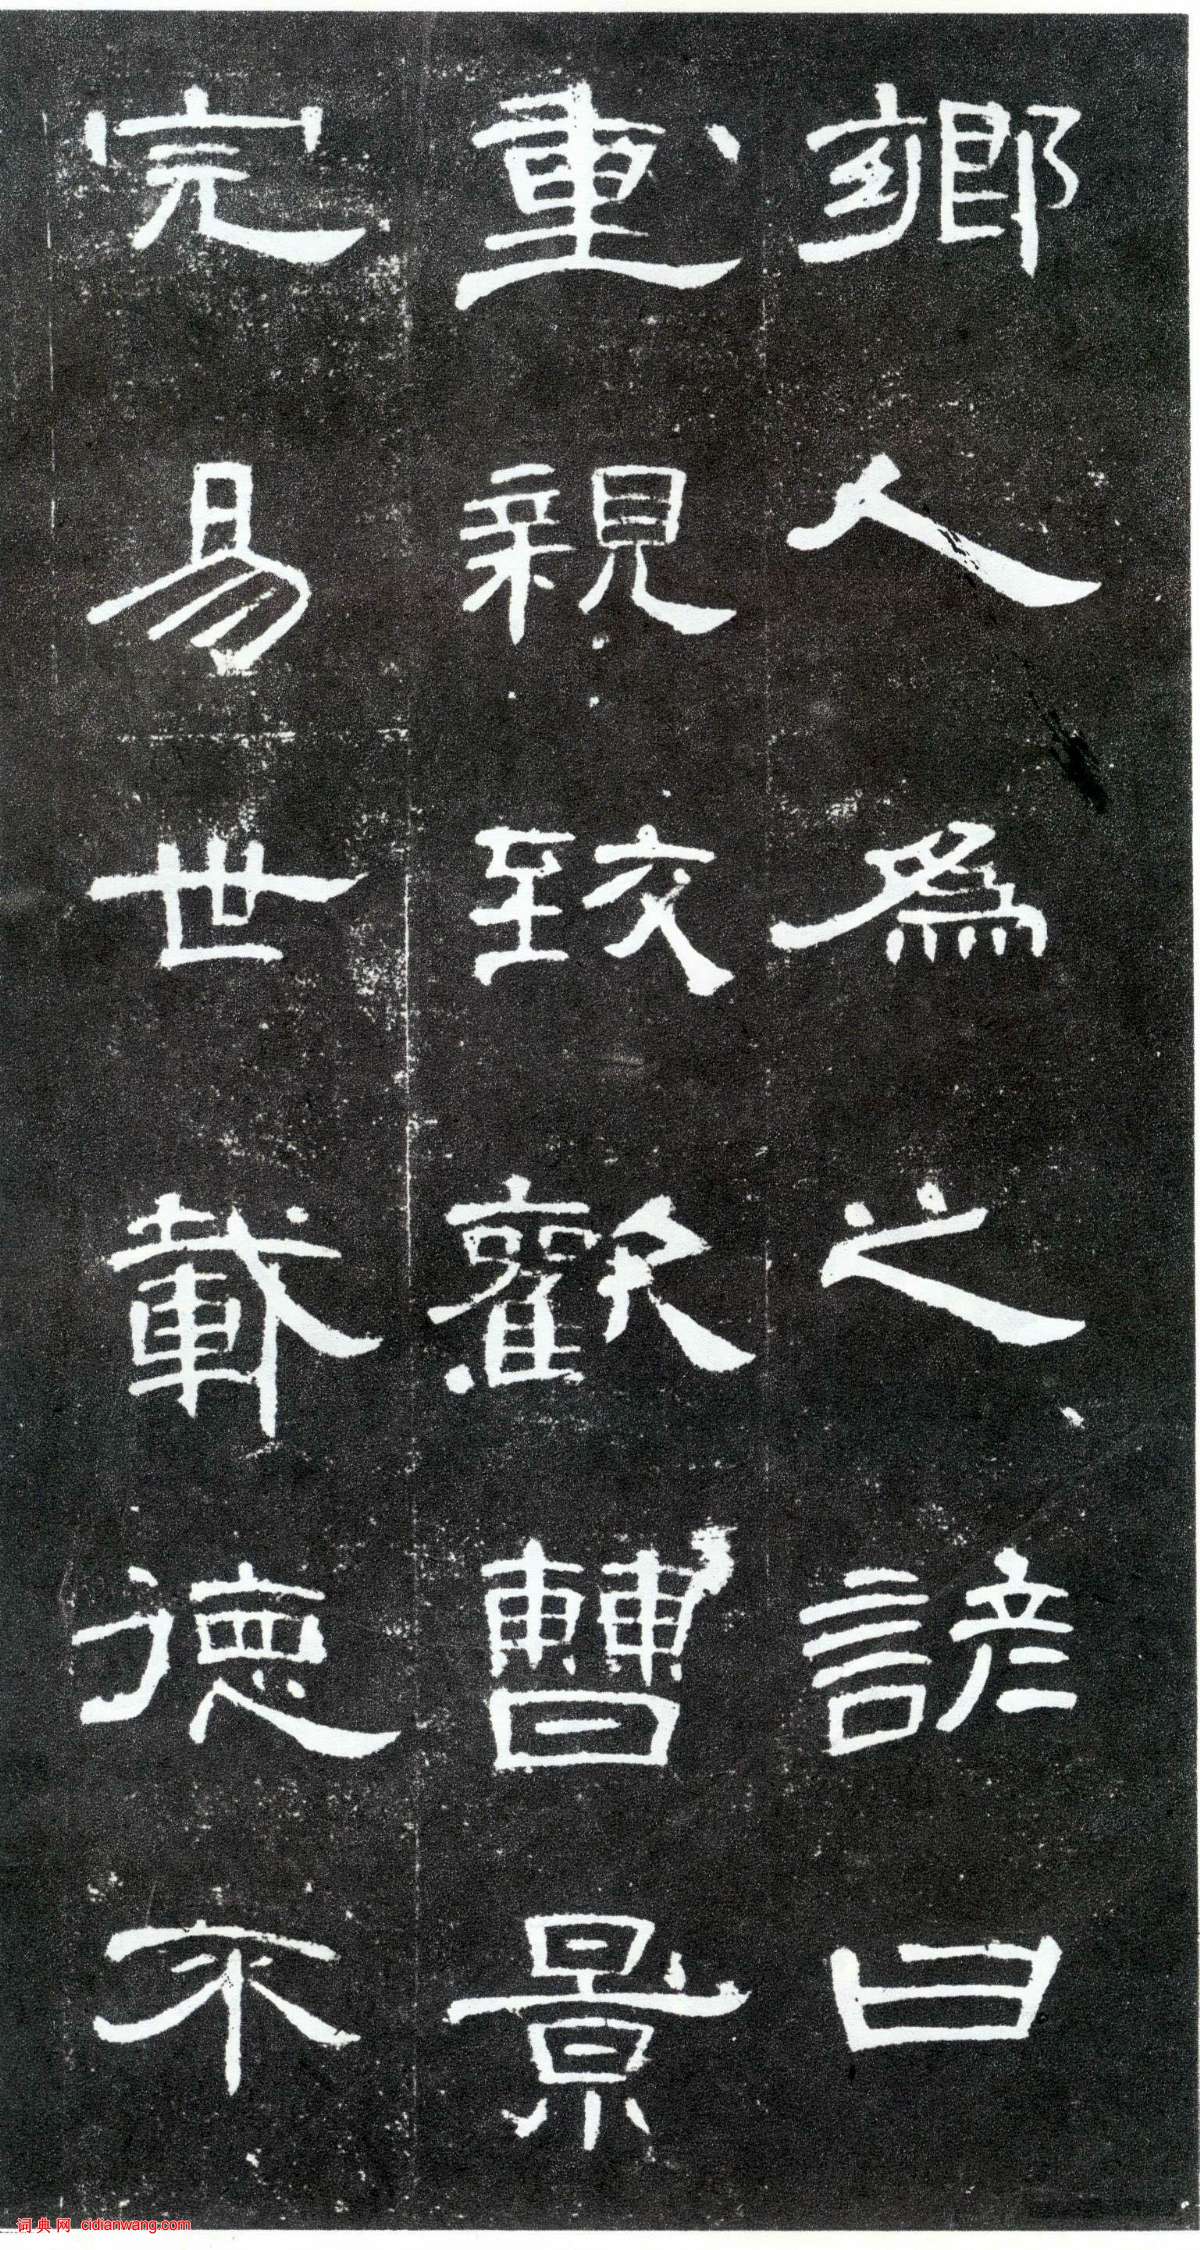 鄉人為之諺曰
重親致歡曹景
完易世載德不
词典网 cidianwang.com